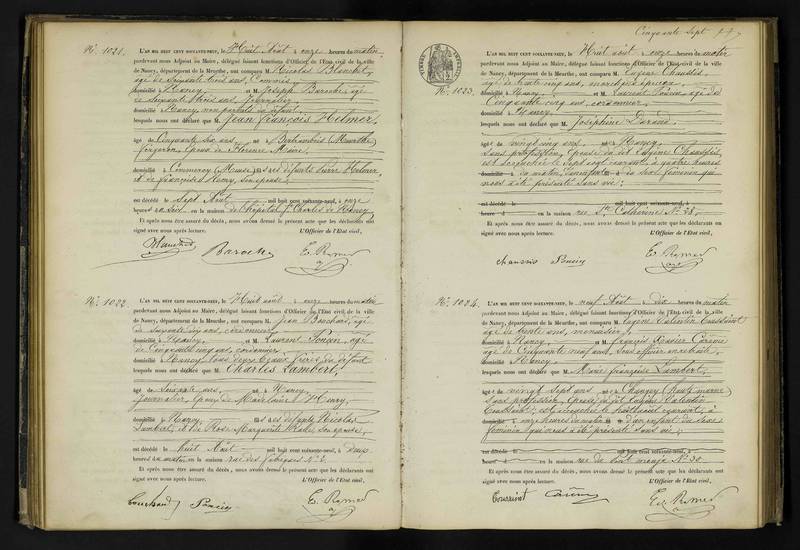 Cinquante Sept
N°. 1021.
L'AN MIL HUIT CENT SOIXANTE-NEUF, le Huit Août à onze heures du matin
pardevant nous Adjoint au Maire, délégué faisant fonctions d'Officier de l'Etat civil de la ville
de Nancy, département de la Meurthe, ont comparu M. Nicolas
domicilié à Nancy, et M. Joseph Baroche, âgé
de soixante ans, journalier,
domicilié à Nancy, non parents du défunt,
lesquels nous ont déclaré que M. Jean François Helmer,
âgé de Cinquante six ans, né à (Meurthe)
forgeron, époux de
domicilié à Commercy (Meuse) fils des défunts Pierre Helmer
et de Françoise son épouse,
est décédé le Sept Août mil huit cent soixante-neuf, à onze
heures du soir en la maison de l'hôpital St. Charles de Nancy,
Et après nous être assuré du décès, nous avons dressé le présent acte que les déclarants ont
signé avec nous après lecture. L'Officier de l'Etat civil,
Baroche
N°. 1022.
L'AN MIL HUIT CENT SOIXANTE-NEUF, le Huit août à onze heures du matin
pardevant nous Adjoint au Maire, délégué faisant fonctions d'Officier de l'Etat civil de la ville
de Nancy, département de la Meurthe, ont comparu M. Jean âgé
de soixante cinq ans, cordonnier,
domicilié à Nancy, et M. Laurent âgé
de Cinquante cinq ans, cordonnier,
domicilié à Nancy, tous deux beaux frères du défunt
lesquels nous ont déclaré que M. Charles Lambert,
âgé de Soixante ans, né à Nancy
journalier, époux de Madelaine Henry,
domicilié à Nancy fils des défunts Nicolas
Lambert et de Rose Marguerite son épouse,
est décédé le huit Août mil huit cent soixante-neuf, à deux
heures du matin en la maison rue des Fabriques N° 6.
Et après nous être assuré du décès, nous avons dressé le présent acte que les déclarants ont
signé avec nous après lecture. L'Officier de l'Etat civil,
N°. 1023.
L'AN MIL HUIT CENT SOIXANTE-NEUF, le Huit août à onze heures du matin
pardevant nous Adjoint au Maire, délégué faisant fonctions d'Officier de l'Etat civil de la ville
de Nancy, département de la Meurthe, ont comparu M. Eugène
âgé de trente cinq ans,
domicilié à Nancy, et M. Laurent âgé de
Cinquante cinq ans, cordonnier,
domicilié à Nancy,
lesquels nous ont déclaré que M. Joséphine Durand,
âgé de vingt cinq ans, né à Nancy,
sans profession, épouse du dit Eugène
est accouchée le sept août courant à quatre heures
du matin, d'un enfant du sexe féminin qui
nous a été présenté sans vie;
est décédé le mil huit cent soixante-neuf, à
heure d en la maison rue Ste. Catherine N° 28,
Et après nous être assuré du décès, nous avons dressé le présent acte que les déclarants ont
signé avec nous après lecture. L'Officier de l'Etat civil,
N°. 1024.
L'AN MIL HUIT CENT SOIXANTE-NEUF, le neuf Août à dix heures du matin
pardevant nous Adjoint au Maire, délégué faisant fonctions d'Officier de l'Etat civil de la ville
de Nancy, département de la Meurthe, ont comparu M. Eugène Valentin Toussaint
âgé de trente ans, menuisier,
domicilié à Nancy, et M. François Xavier
âgé de Cinquante neuf ans, sous officier en retraite,
domicilié à Nancy,
lesquels nous ont déclaré que M. Marie Françoise Lambert,
âgé de vingt sept ans, né à Changey (Haute marne)
sans profession, épouse du dit Eugène Valentin
Toussaint, est accouchée le huit août courant, à
onze heures du matin d'un enfant du sexe
féminin qui nous a été présenté sans vie;
est décédé le mil huit cent soixante-neuf, à
heure d en la maison rue du Pont mouja N° 30
Et après nous être assuré du décès, nous avons dressé le présent acte que les déclarants ont
signé avec nous après lecture. L'Officier de l'Etat civil,
Toussaint